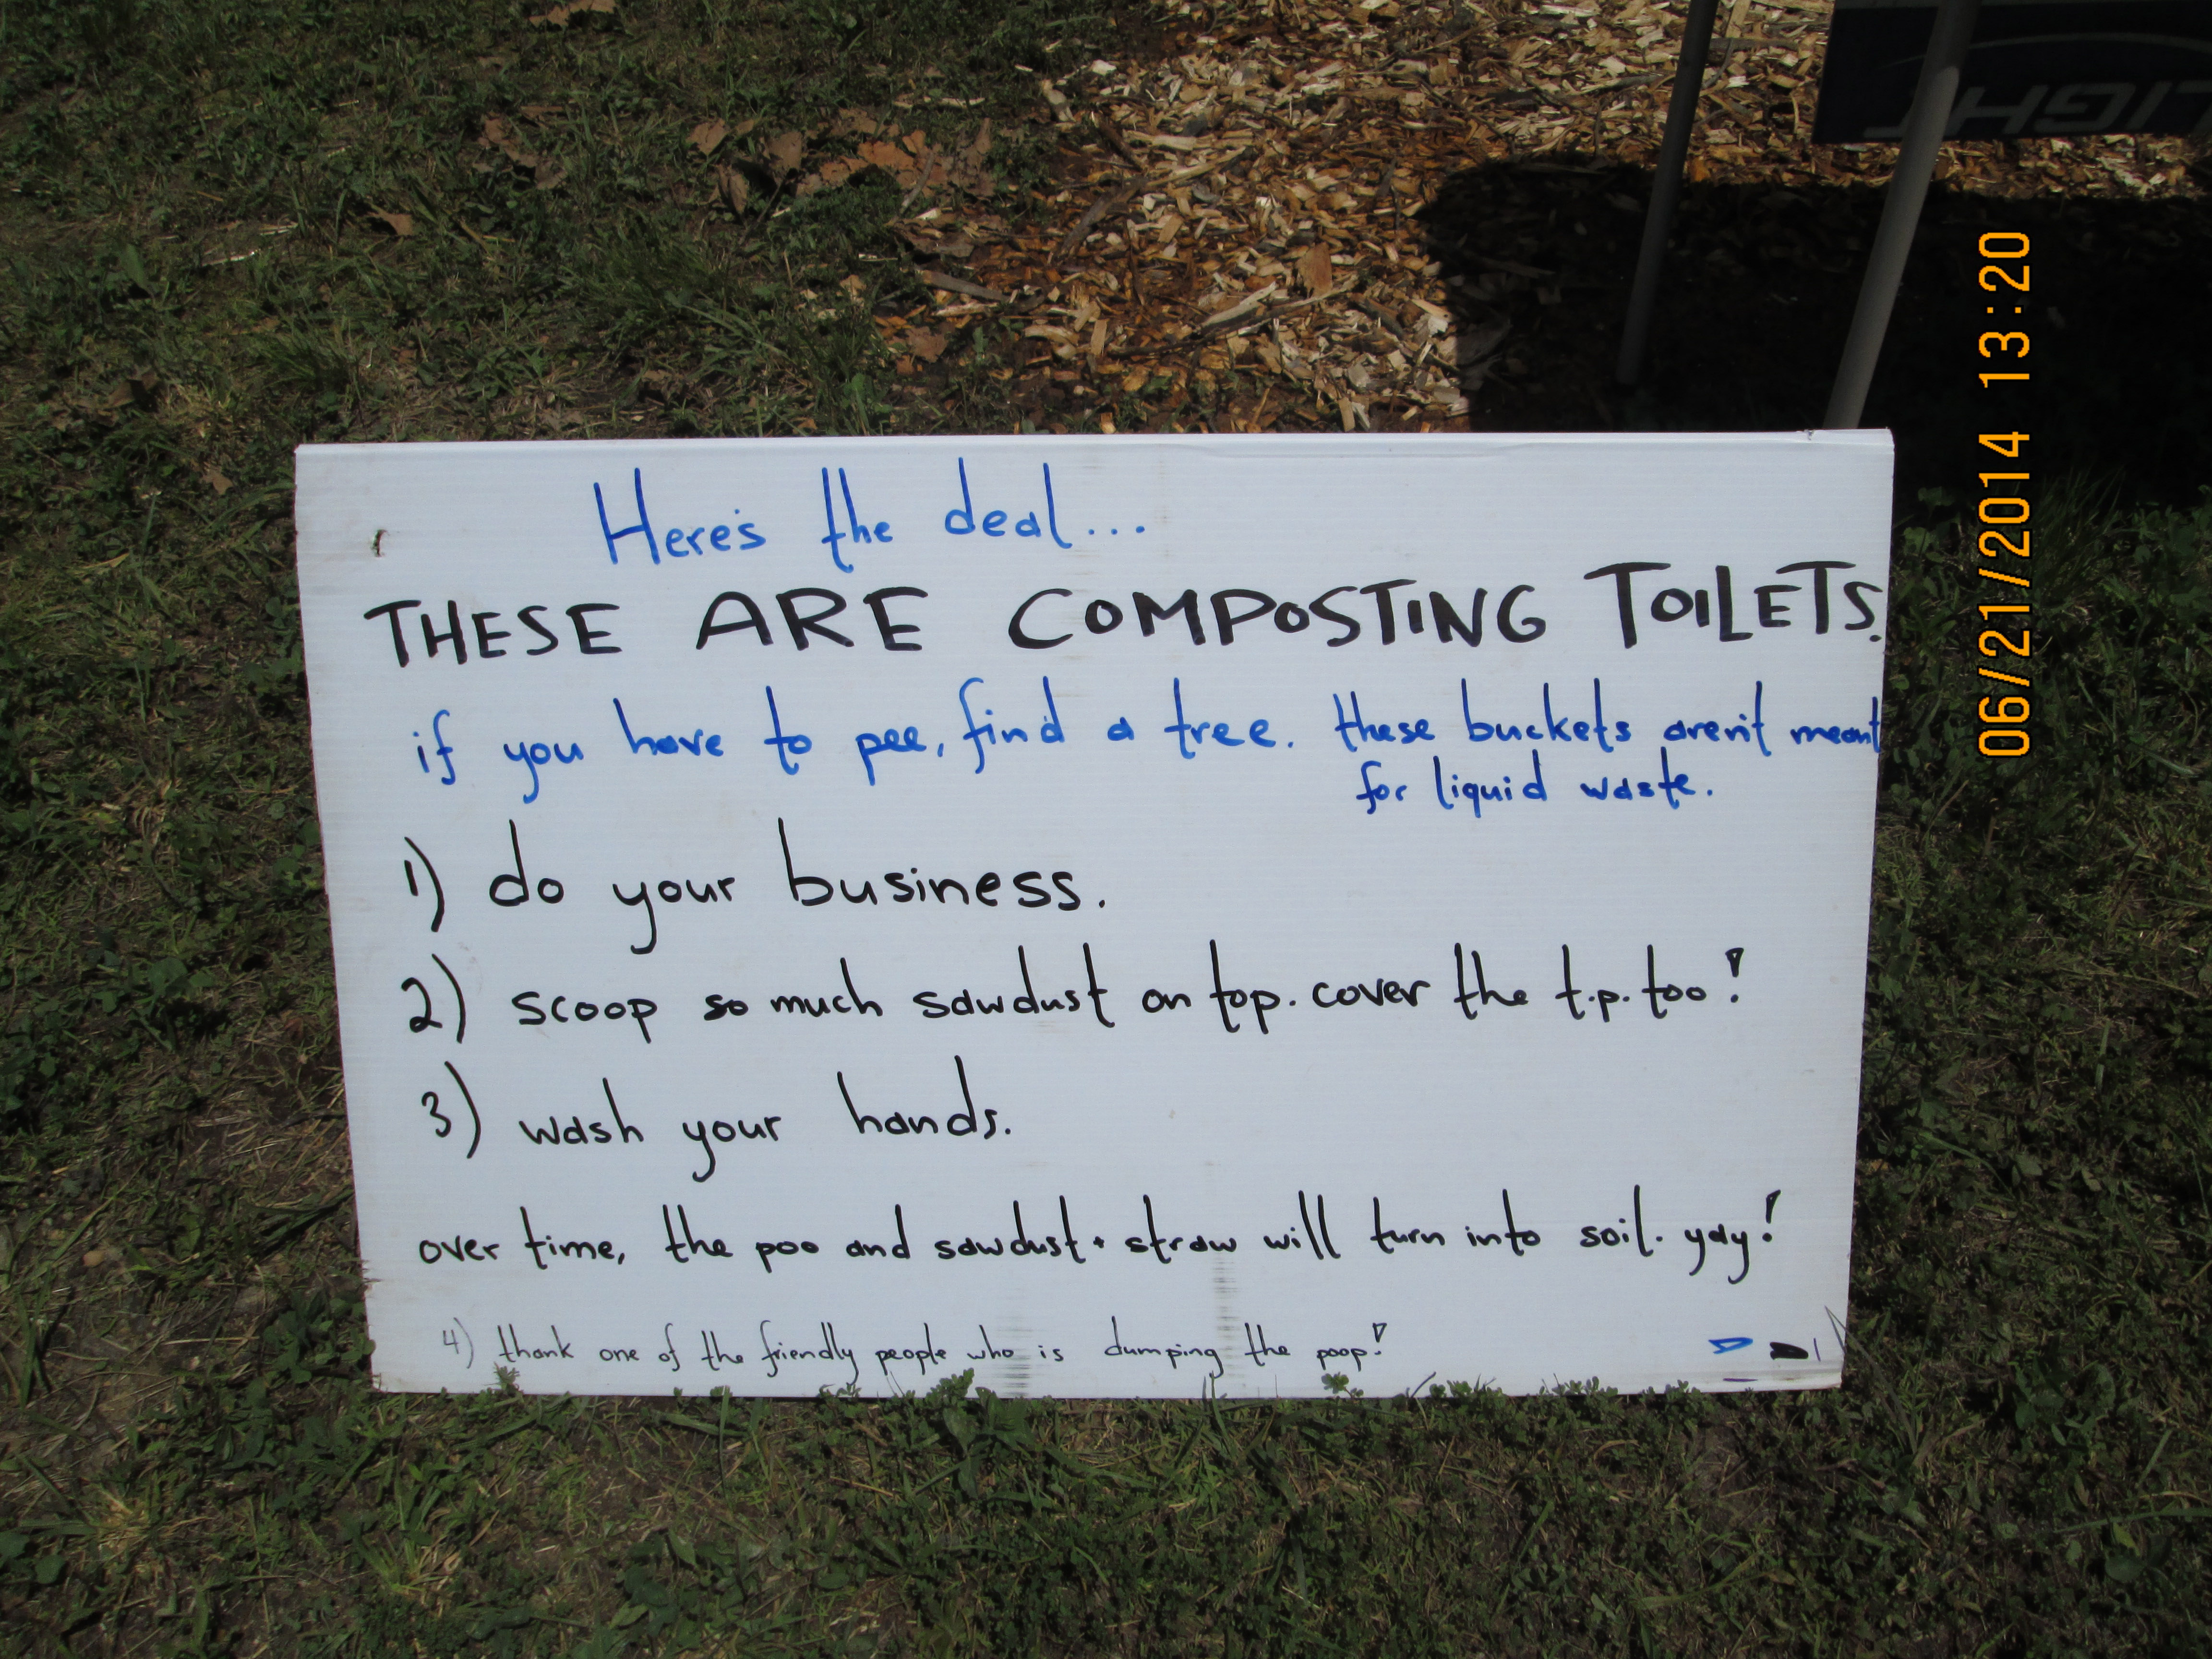 LIGHT
Here's the deal...
THESE ARE COMPOSTING TOILETS.
if you have to pee, find a tree. these buckets aren't meant
for liquid waste.
1) do your business.
2) scoop so much sawdust on top. cover the t.p. too!
3) wash your hands.
over time, the poo and sawdust + straw will turn into soil. yay!
4) thank one of the friendly people who is dumping the poop!
06/21/2014 13:20